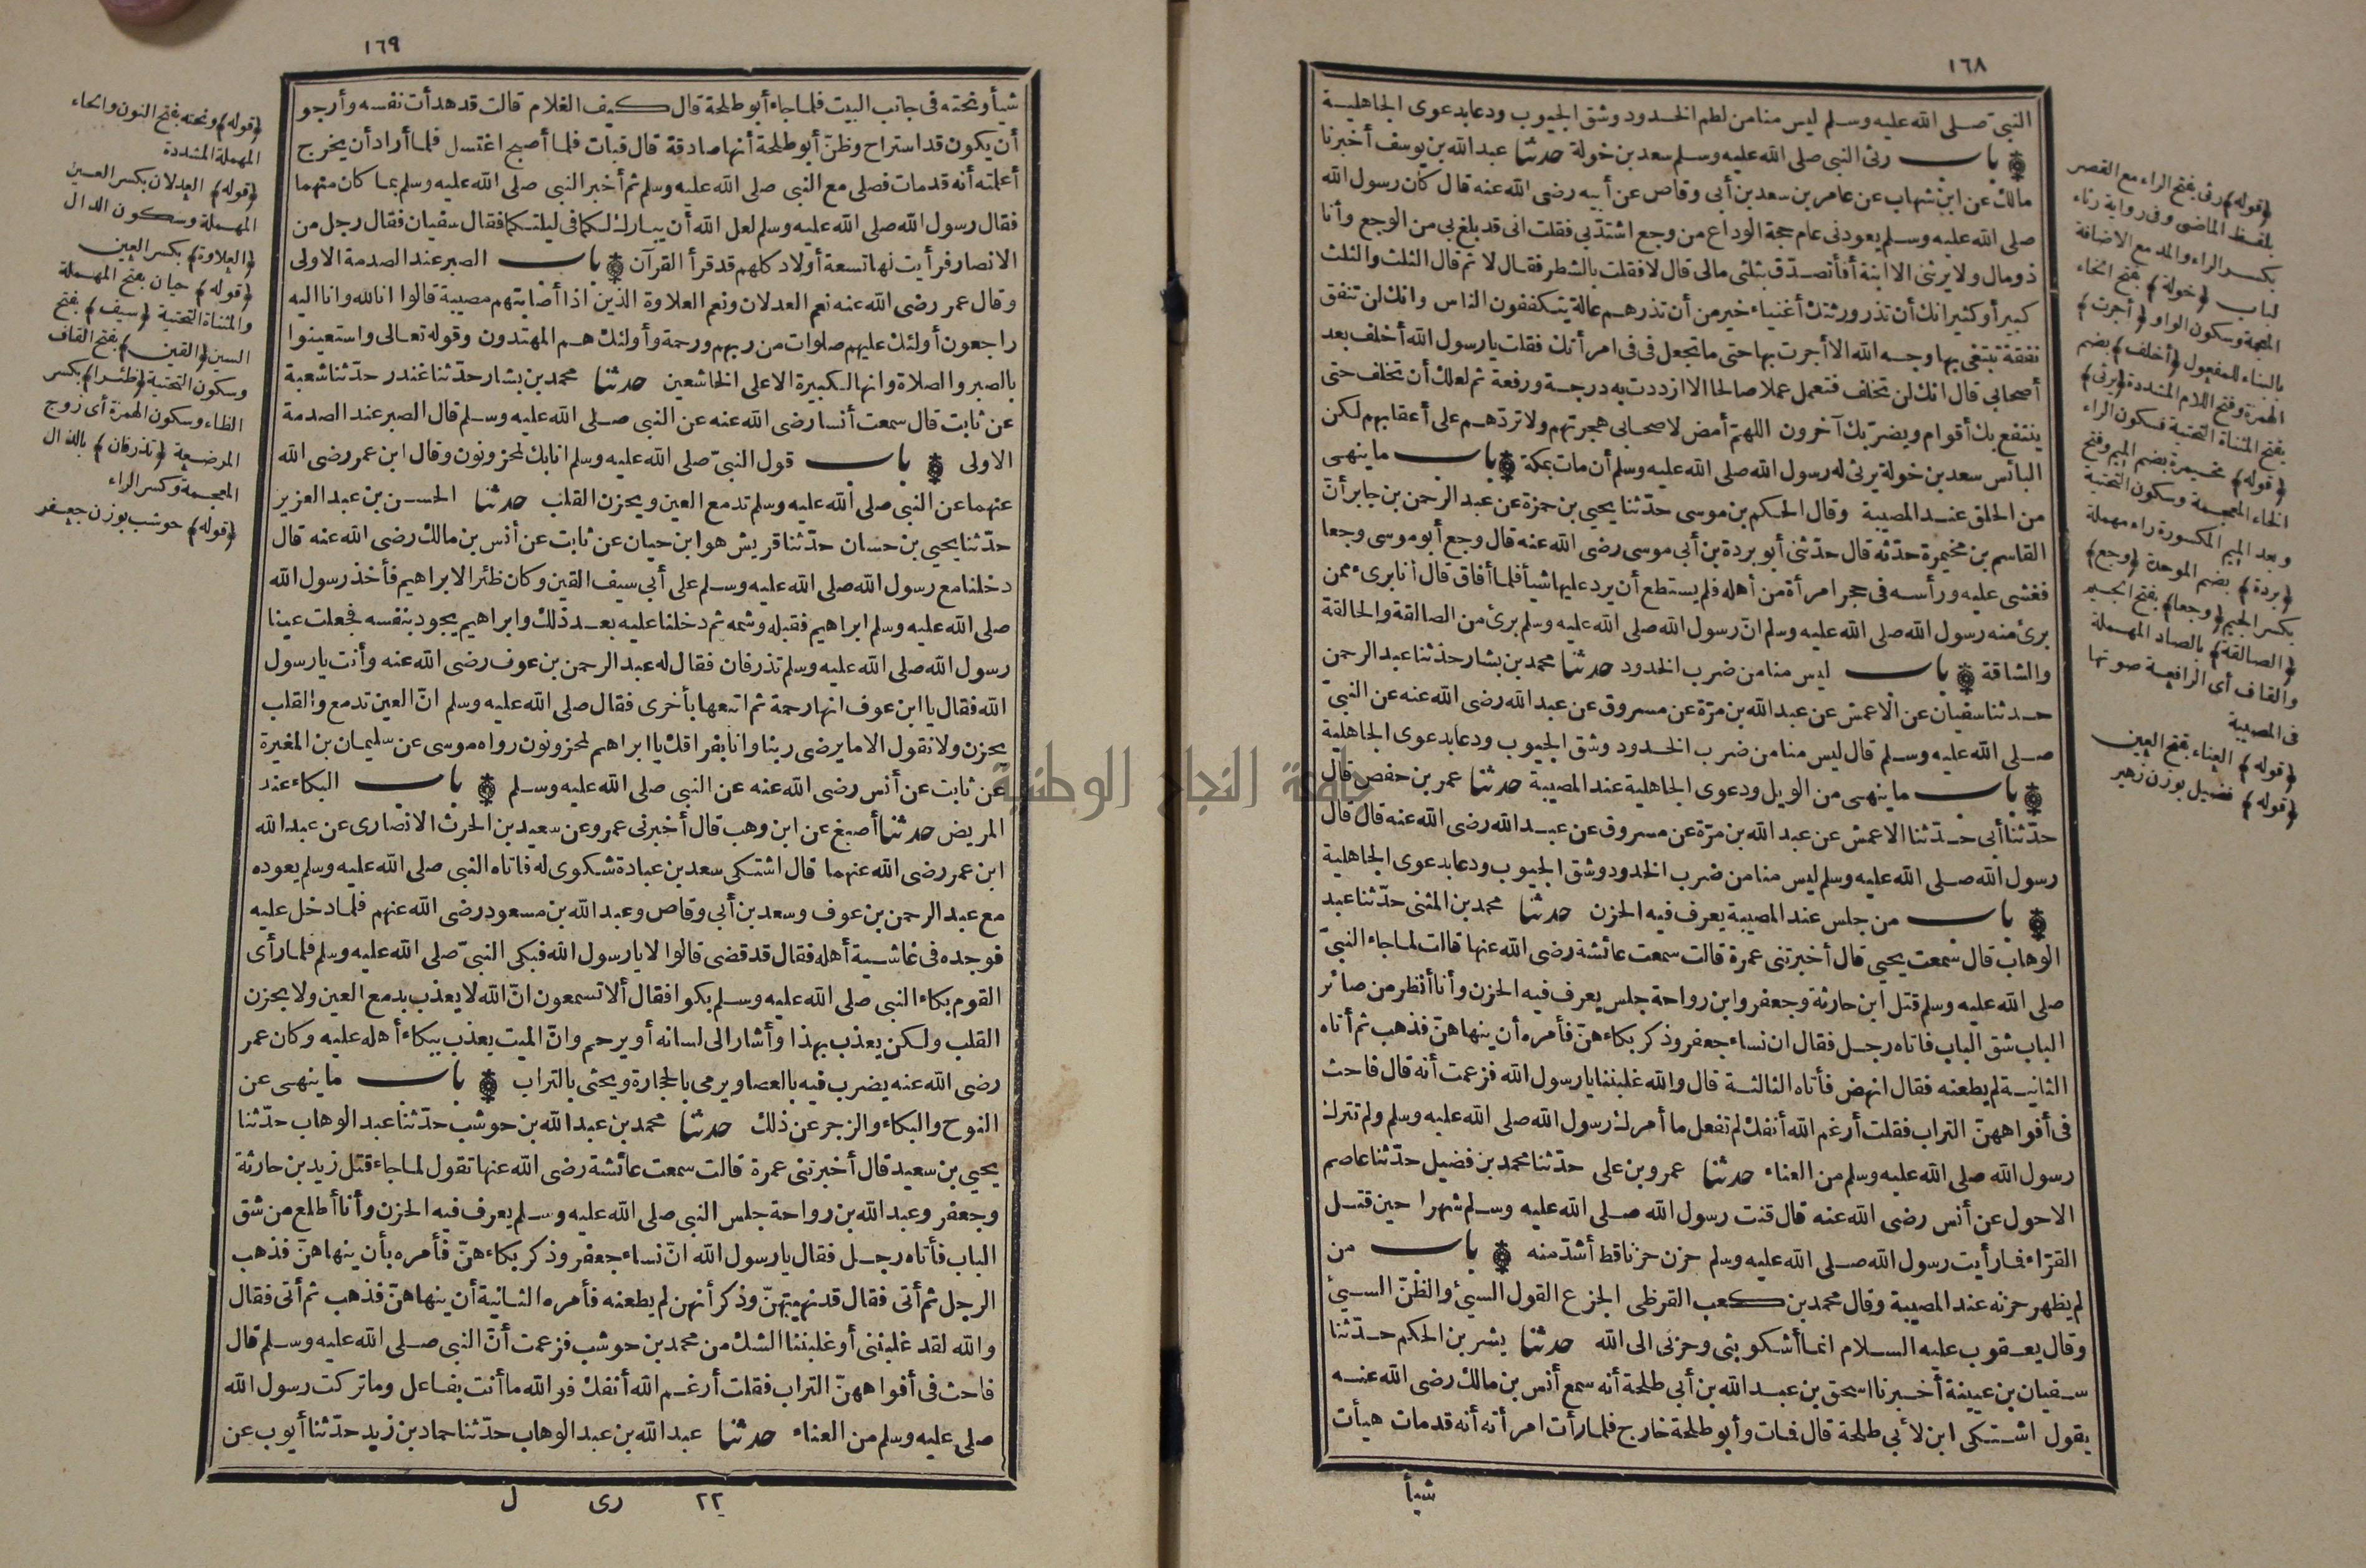 ١٦٨
النبي صلى الله عليه وسلم ليس منا من لطم الخدود وشق الجيوب ودعا بدعوى الجاهلية
باب رثى النبي صلى الله عليه وسلم سعد بن خولة حدثنا عبد الله بن يوسف أخبرنا
مالك عن ابن شهاب عن عامر بن سعد بن أبي وقاص عن أبيه رضى الله عنه قال كان رسول الله
صلى الله عليه وسلم يعودني عام حجة الوداع من وجع اشتد بي فقلت انى قد بلغ بي من الوجع وأنا
ذو مال ولا يرثنى الا ابنة أفأتصدق بثلثى مالى قال لا فقلت بالشطر فقال لا ثم قال الثلث والثلث
كبير أو كثير انك أن تذر ورثتك أغنياء خير من أن تذرهم عالة يتكففون الناس وانك لن تنفق
نفقة تبتغى بها وجه الله الا أجرت بها حتى ما تجعل فى فى امرأتك فقلت يا رسول الله أخلف بعد
أصحابى قال انك لن تخلف فتعمل عملا صالحا الا ازددت به درجة ورفعة ثم لعلك أن تخلف حتى
ينتفع بك أقوام ويضر بك آخرون اللهم أمض لاصحابى هجرتهم ولا تردهم على أعقابهم لكن
البائس سعد بن خولة يرثى له رسول الله صلى الله عليه وسلم أن مات بمكة باب ما ينهى
من الحلق عند المصيبة وقال الحكم بن موسى حدّثنا يحيى بن حمزة عن عبد الرحمن بن جابر أنّ
القاسم بن مخيمرة حدّثه قال حدّثنى أبو بردة بن أبى موسى رضى الله عنه قال وجع أبو موسى وجعا
فغشى عليه ورأسه فى حجر امرأة من أهله فلم يستطع أن يرد عليها شيأ فلما أفاق قال أنا برىء ممن
برئ منه رسول الله صلى الله عليه وسلم انّ رسول الله صلى الله عليه وسلم برئ من الصالقة والحالقة
والشاقة باب ليس منا من ضرب الخدود حدثنا محمد بن بشار حدّثنا عبد الرحمن
حدثنا سفيان عن الاعمش عن عبد الله بن مرّة عن مسروق عن عبد الله رضى الله عنه عن النبىّ
صلى الله عليه وسلم قال ليس منا من ضرب الخدود وشق الجيوب ودعا بدعوى الجاهلية
باب ما ينهى من الويل ودعوى الجاهلية عند المصيبة حدثنا عمر بن حفص قال
حدّثنا أبى حدّثنا الاعمش عن عبد الله بن مرّة عن مسروق عن عبد الله رضى الله عنه قال قال
رسول الله صلى الله عليه وسلم ليس منا من ضرب الخدود وشق الجيوب ودعا بدعوى الجاهلية
باب من جلس عند المصيبة يعرف فيه الحزن حدثنا محمد بن المثنى حدّثنا عبد
الوهاب قال سمعت يحيى قال أخبرتنى عمرة قالت سمعت عائشة رضى الله عنها قالت لما جاء النبىّ
صلى الله عليه وسلم قتل ابن حارثة وجعفر وابن رواحة جلس يعرف فيه الحزن وأنا أنظر من صائر
الباب شق الباب فاتاه رجل فقال ان نساء جعفر وذكر بكاءهنّ فأمره أن ينهاهنّ فذهب ثم أتاه
الثانية لم يطعنه فقال انهض فأتاه الثالثة قال والله غلبننا يا رسول الله فزعمت أنه قال فاحث
فى أفواههنّ التراب فقلت أرغم الله أنفك لم تفعل ما أمرك رسول الله صلى الله عليه وسلم ولم تترك
رسول الله صلى الله عليه وسلم من العناء حدثنا عمرو بن على حدّثنا محمد بن فضيل حدّثنا عاصم
الاحول عن أنس رضى الله عنه قال قنت رسول الله صلى الله عليه وسلم شهرا حين قتل
القرّاء فما رأيت رسول الله صلى الله عليه وسلم حزن حزنا قط أشدّ منه باب من
لم يظهر حزنه عند المصيبة وقال محمد بن كعب القرظى الجزع القول السيئ والظنّ السيئ
وقال يعقوب عليه السلام انما أشكو بثى وحزنى الى الله حدثنا بشر بن الحكم حدّثنا
سفيان بن عيينة أخبرنا اسحق بن عبد الله بن أبى طلحة أنه سمع أنس بن مالك رضى الله عنه
يقول اشتكى ابن لأبى طلحة قال فمات وأبو طلحة خارج فلما رأت امرأته أنه قد مات هيأت
شيأ
﴿قوله﴾ رثى بفتح الراء مع القصر
بلفظ الماضى وفى رواية رثاء
بكسر الراء والمد مع الاضافة
لباب ﴿خولة﴾ بفتح الخاء
المعجمة وسكون الواو ﴿أجرت﴾
بالبناء للمفعول ﴿أخلف﴾ بضم
الهمزة وفتح اللام المشددة ﴿يرثى﴾
بفتح المثناة التحتية فسكون الراء
﴿قوله﴾ مخيمرة بضم الميم وفتح
الخاء المعجمة وسكون التحتية
وبعد الميم المكسورة راء مهملة
﴿بردة﴾ بضم الموحدة ﴿وجع﴾
بكسر الجيم ﴿وجعا﴾ بفتح الجيم
﴿الصالقة﴾ بالصاد المهملة
والقاف أى الرافعة صوتها
فى المصيبة
﴿قوله﴾ العناء بفتح العين
﴿قوله﴾ فضيل بوزن زهير
١٦٩
شيأ ونحته فى جانب البيت فلما جاء أبو طلحة قال كيف الغلام قالت قد هدأت نفسه وأرجو
أن يكون قد استراح وظنّ أبو طلحة أنها صادقة قال فبات فلما أصبح اغتسل فلما أراد أن يخرج
أعلمته أنه قد مات فصلى مع النبى صلى الله عليه وسلم ثم أخبر النبى صلى الله عليه وسلم بما كان منهما
فقال رسول الله صلى الله عليه وسلم لعل الله أن يبارك لكما فى ليلتكما فقال سفيان فقال رجل من
الانصار فرأيت لها تسعة أولاد كلهم قد قرأ القرآن باب الصبر عند الصدمة الاولى
وقال عمر رضى الله عنه نعم العدلان ونعم العلاوة الذين اذا أصابتهم مصيبة قالوا انا لله وانا اليه
راجعون أولئك عليهم صلوات من ربهم ورحمة وأولئك هم المهتدون وقوله تعالى واستعينوا
بالصبر والصلاة وانها لكبيرة الا على الخاشعين حدثنا محمد بن بشار حدّثنا غندر حدّثنا شعبة
عن ثابت قال سمعت أنسا رضى الله عنه عن النبى صلى الله عليه وسلم قال الصبر عند الصدمة
الاولى باب قول النبىّ صلى الله عليه وسلم انا بك لمحزونون وقال ابن عمر رضى الله
عنهما عن النبى صلى الله عليه وسلم تدمع العين ويحزن القلب حدثنا الحسن بن عبد العزيز
حدّثنا يحيى بن حسان حدّثنا قريش هو ابن حيان عن ثابت عن أنس بن مالك رضى الله عنه قال
دخلنا مع رسول الله صلى الله عليه وسلم على أبى سيف القين وكان ظئرا لابراهيم فأخذ رسول الله
صلى الله عليه وسلم ابراهيم فقبله وشمه ثم دخلنا عليه بعد ذلك وابراهيم يجود بنفسه فجعلت عينا
رسول الله صلى الله عليه وسلم تذرفان فقال له عبد الرحمن بن عوف رضى الله عنه وأنت يا رسول
الله فقال يا ابن عوف انها رحمة ثم اتبعها بأخرى فقال صلى الله عليه وسلم انّ العين تدمع والقلب
يحزن ولا نقول الا ما يرضى ربنا وانا بفراقك يا ابراهيم لمحزونون رواه موسى عن سليمان بن المغيرة
عن ثابت عن أنس رضى الله عنه عن النبى صلى الله عليه وسلم باب البكاء عند
المريض حدثنا أصبغ عن ابن وهب قال أخبرنى عمرو عن سعيد بن الحرث الانصارى عن عبد الله
ابن عمر رضى الله عنهما قال اشتكى سعد بن عبادة شكوى له فاتاه النبى صلى الله عليه وسلم يعوده
مع عبد الرحمن بن عوف وسعد بن أبى وقاص وعبد الله بن مسعود رضى الله عنهم فلما دخل عليه
فوجده فى غاشية أهله فقال قد قضى قالوا لا يا رسول الله فبكى النبىّ صلى الله عليه وسلم فلما رأى
القوم بكاء النبى صلى الله عليه وسلم بكوا فقال ألا تسمعون انّ الله لا يعذب بدمع العين ولا بحزن
القلب ولكن يعذب بهذا وأشار الى لسانه أو يرحم وانّ الميت يعذب ببكاء أهله عليه وكان عمر
رضى الله عنه يضرب فيه بالعصا ويرمى بالحجارة ويحثى بالتراب باب ما ينهى عن
النوح والبكاء والزجر عن ذلك حدثنا محمد بن عبد الله بن حوشب حدّثنا عبد الوهاب حدّثنا
يحيى بن سعيد قال أخبرتنى عمرة قالت سمعت عائشة رضى الله عنها تقول لما جاء قتل زيد بن حارثة
وجعفر وعبد الله بن رواحة جلس النبى صلى الله عليه وسلم يعرف فيه الحزن وأنا أطلع من شق
الباب فأتاه رجل فقال يا رسول الله انّ نساء جعفر وذكر بكاءهنّ فأمره بأن ينهاهنّ فذهب
الرجل ثم أتى فقال قد نهيتهنّ وذكر أنهن لم يطعنه فأمره الثانية أن ينهاهنّ فذهب ثم أتى فقال
والله لقد غلبننى أو غلبننا الشك من محمد بن حوشب فزعمت أنّ النبى صلى الله عليه وسلم قال
فاحث فى أفواههنّ التراب فقلت أرغم الله أنفك فوالله ما أنت بفاعل وما تركت رسول الله
صلى عليه وسلم من العناء حدثنا عبد الله بن عبد الوهاب حدّثنا حماد بن زيد حدّثنا أيوب عن
٢٢ رى ل
﴿قوله﴾ ونحته بفتح النون والحاء
المهملة المشددة
﴿قوله﴾ العدلان بكسر العين
المهملة وسكون الدال
﴿العلاوة﴾ بكسر العين
﴿قوله﴾ حيان بفتح المهملة
والمثناة التحتية ﴿سيف﴾ بفتح
السين ﴿القين﴾ بفتح القاف
وسكون التحتية ﴿ظئرا﴾ بكسر
الظاء وسكون الهمزة أى زوج
المرضعة ﴿تذرفان﴾ بالذال
المعجمة وكسر الراء
﴿قوله﴾ حوشب بوزن جعفر
جامعة النجاح الوطنية